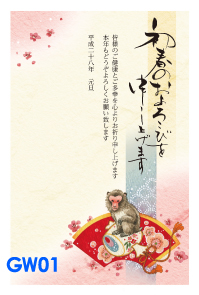 初春のおよろこびを
申し上げます
皆様のご健康とご多幸を心よりお祈り申し上げます
本年もどうぞよろしくお願い致します
平成二十八年 元旦
GW01